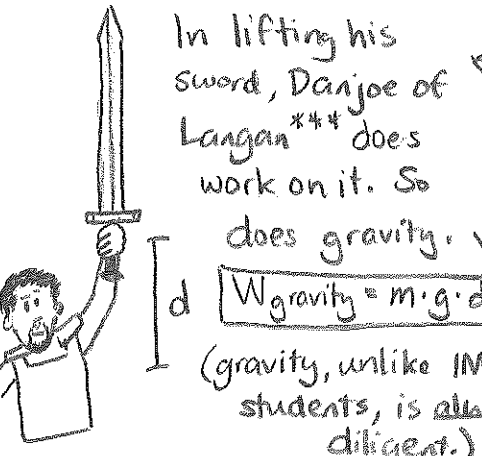 In lifting his
sword, Danjoe of
Langan*** does
work on it. So
does gravity.
d
Wgravity = m·g·d
(gravity, unlike IM
students, is
diligent.)